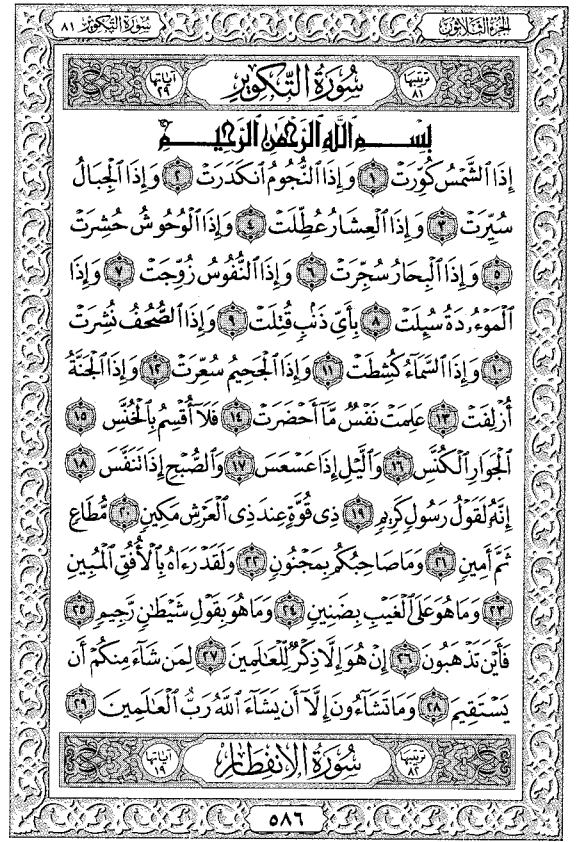 سُورَةُ التَّكْوِيرِ ٨١ الجُزْءُ الثَّلَاثُونَ
ترتيبها ٨١ سُورَةُ التَّكْوِيرِ آياتها ٢٩
بِسْمِ ٱللَّهِ ٱلرَّحْمَٰنِ ٱلرَّحِيمِ
إِذَا ٱلشَّمْسُ كُوِّرَتْ ١ وَإِذَا ٱلنُّجُومُ ٱنكَدَرَتْ ٢ وَإِذَا ٱلْجِبَالُ
سُيِّرَتْ ٣ وَإِذَا ٱلْعِشَارُ عُطِّلَتْ ٤ وَإِذَا ٱلْوُحُوشُ حُشِرَتْ
٥ وَإِذَا ٱلْبِحَارُ سُجِّرَتْ ٦ وَإِذَا ٱلنُّفُوسُ زُوِّجَتْ ٧ وَإِذَا
ٱلْمَوْءُۥدَةُ سُئِلَتْ ٨ بِأَىِّ ذَنۢبٍ قُتِلَتْ ٩ وَإِذَا ٱلصُّحُفُ نُشِرَتْ
١٠ وَإِذَا ٱلسَّمَآءُ كُشِطَتْ ١١ وَإِذَا ٱلْجَحِيمُ سُعِّرَتْ ١٢ وَإِذَا ٱلْجَنَّةُ
أُزْلِفَتْ ١٣ عَلِمَتْ نَفْسٌ مَّآ أَحْضَرَتْ ١٤ فَلَآ أُقْسِمُ بِٱلْخُنَّسِ ١٥
ٱلْجَوَارِ ٱلْكُنَّسِ ١٦ وَٱلَّيْلِ إِذَا عَسْعَسَ ١٧ وَٱلصُّبْحِ إِذَا تَنَفَّسَ ١٨
إِنَّهُۥ لَقَوْلُ رَسُولٍ كَرِيمٍ ١٩ ذِى قُوَّةٍ عِندَ ذِى ٱلْعَرْشِ مَكِينٍ ٢٠ مُّطَاعٍ
ثَمَّ أَمِينٍ ٢١ وَمَا صَاحِبُكُم بِمَجْنُونٍ ٢٢ وَلَقَدْ رَءَاهُ بِٱلْأُفُقِ ٱلْمُبِينِ
٢٣ وَمَا هُوَ عَلَى ٱلْغَيْبِ بِضَنِينٍ ٢٤ وَمَا هُوَ بِقَوْلِ شَيْطَٰنٍ رَّجِيمٍ ٢٥
فَأَيْنَ تَذْهَبُونَ ٢٦ إِنْ هُوَ إِلَّا ذِكْرٌ لِّلْعَٰلَمِينَ ٢٧ لِمَن شَآءَ مِنكُمْ أَن
يَسْتَقِيمَ ٢٨ وَمَا تَشَآءُونَ إِلَّآ أَن يَشَآءَ ٱللَّهُ رَبُّ ٱلْعَٰلَمِينَ ٢٩
ترتيبها ٨٢ سُورَةُ الِانْفِطَارِ آياتها ١٩
٥٨٦